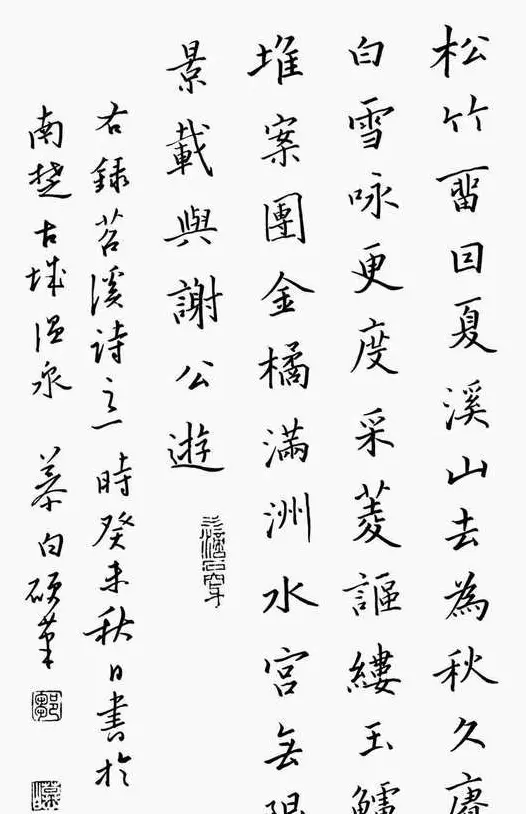 松竹畱囙夏溪山去為秋久賡
白雪咏更度采菱謳縷玉鱸
堆案團金橘滿洲水宮無限
景載與謝公遊
右錄苕溪詩之一時癸未秋日書於
南楚古城温泉 慕白硕筆